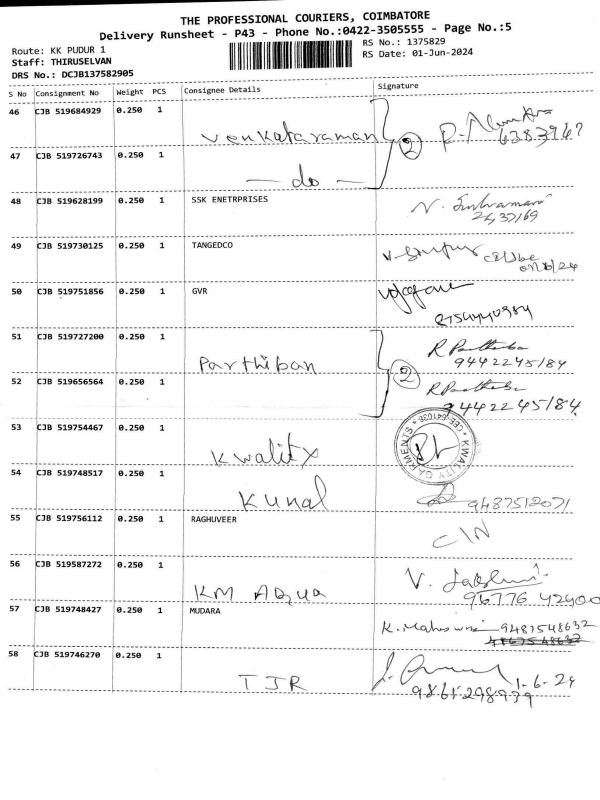 THE PROFESSIONAL COURIERS, COIMBATORE
Delivery Runsheet - P43 - Phone No.:0422-3505555 - Page No.:5
Route: KK PUDUR 1
RS No.: 1375829
Staff: THIRUSELVAN
RS Date: 01-Jun-2024
DRS No.: DCJB137582905
S No Consignment No Weight PCS Consignee Details Signature
46 CJB 519684929 0.250 1 Venkataraman 2
47 CJB 519726743 0.250 1 — do —
48 CJB 519628199 0.250 1 SSK ENETRPRISES
49 CJB 519730125 0.250 1 TANGEDCO
50 CJB 519751856 0.250 1 GVR
51 CJB 519727200 0.250 1 Parthiban 2 9442245184
52 CJB 519656564 0.250 1 9442245184
53 CJB 519754467 0.250 1 Kwality KWALITY GARMENTS
54 CJB 519748517 0.250 1 Kunal
55 CJB 519756112 0.250 1 RAGHUVEER C/N
56 CJB 519587272 0.250 1 KM Aqua V.
57 CJB 519748427 0.250 1 MUDARA 9487548632
58 CJB 519746270 0.250 1 TJR 1-6-24